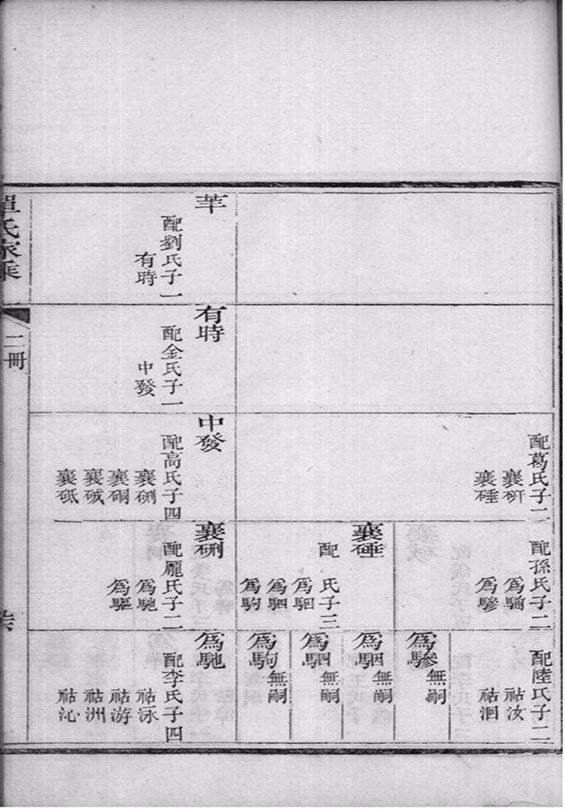 配葛氏子二
襄硏
襄硾
配孫氏子二
爲騸
爲驂
配陸氏子二
祜汝
祜洄
襄硾
配 氏子三
爲駰
爲駟
爲駒
爲驂
無嗣
爲駰
無嗣
爲駟
無嗣
爲駒
無嗣
苹
配劉氏子一
有時
有時
配金氏子一
中發
中發
配高氏子四
襄硎
襄硐
襄砥
襄硎
配龐氏子二
爲馳
爲驅
爲馳
配李氏子四
祜泳
祜游
祜洲
祜沁
單氏家乘
二冊